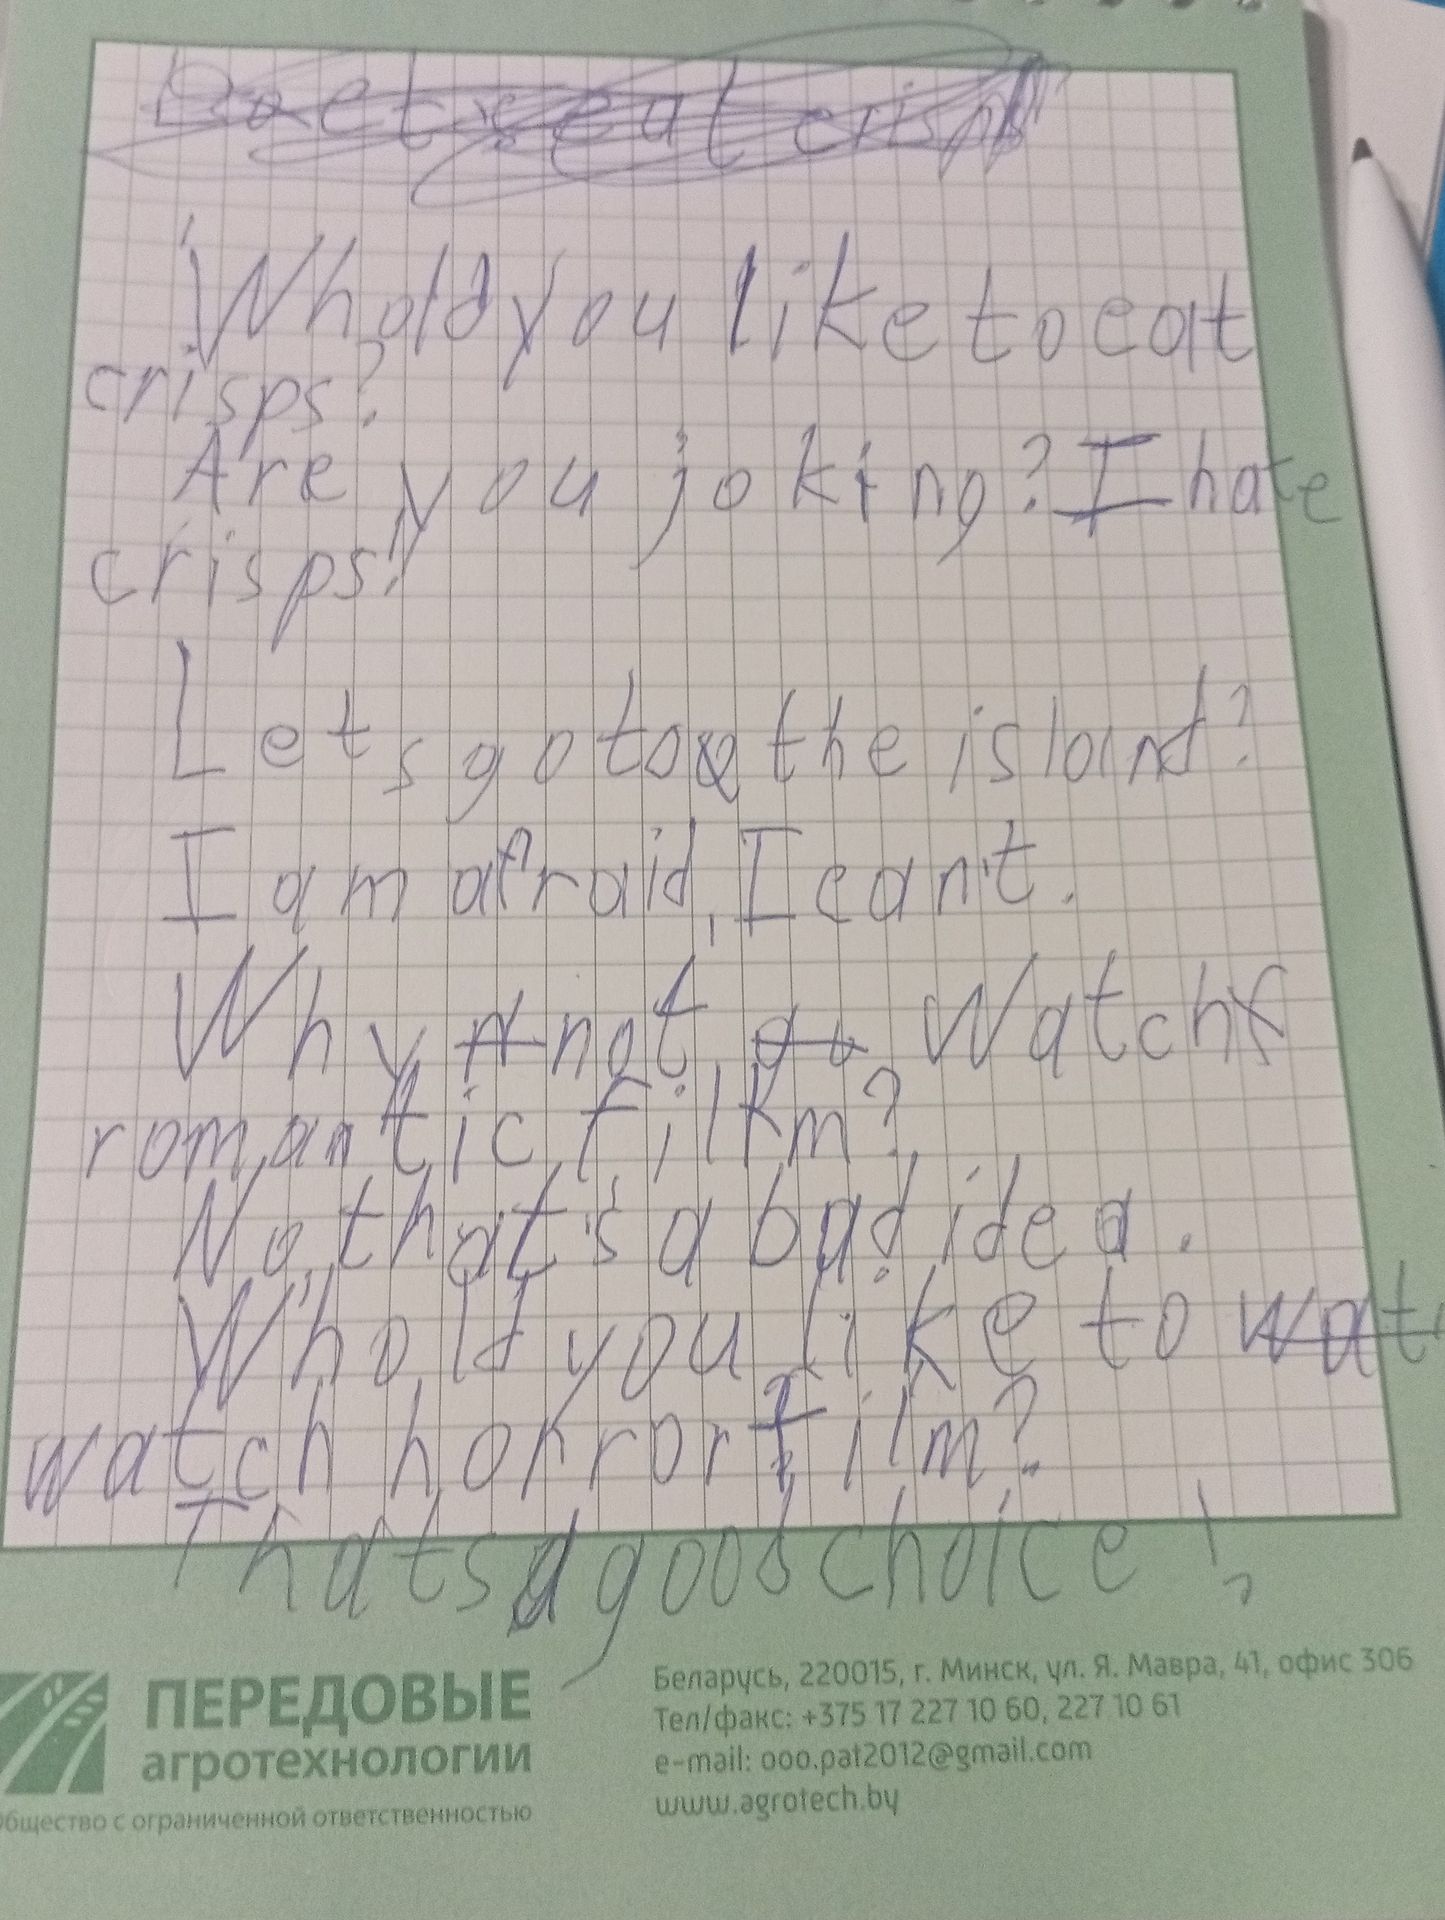 Whold you like to eat
crisps?
Are you joking? I hate
crisps!
Lets go to the island?
I am afraid, I can't.
Why not watch
romantic film?
No, that's a bad idea.
Whold you like to wat
watch horror film?
Thats a good choice!
ПЕРЕДОВЫЕ
агротехнологии
Общество с ограниченной ответственностью
Беларусь, 220015, г. Минск, ул. Я. Мавра, 41, офис 306
Тел/факс: +375 17 227 10 60, 227 10 61
e-mail: ooo.pat2012@gmail.com
www.agrotech.by